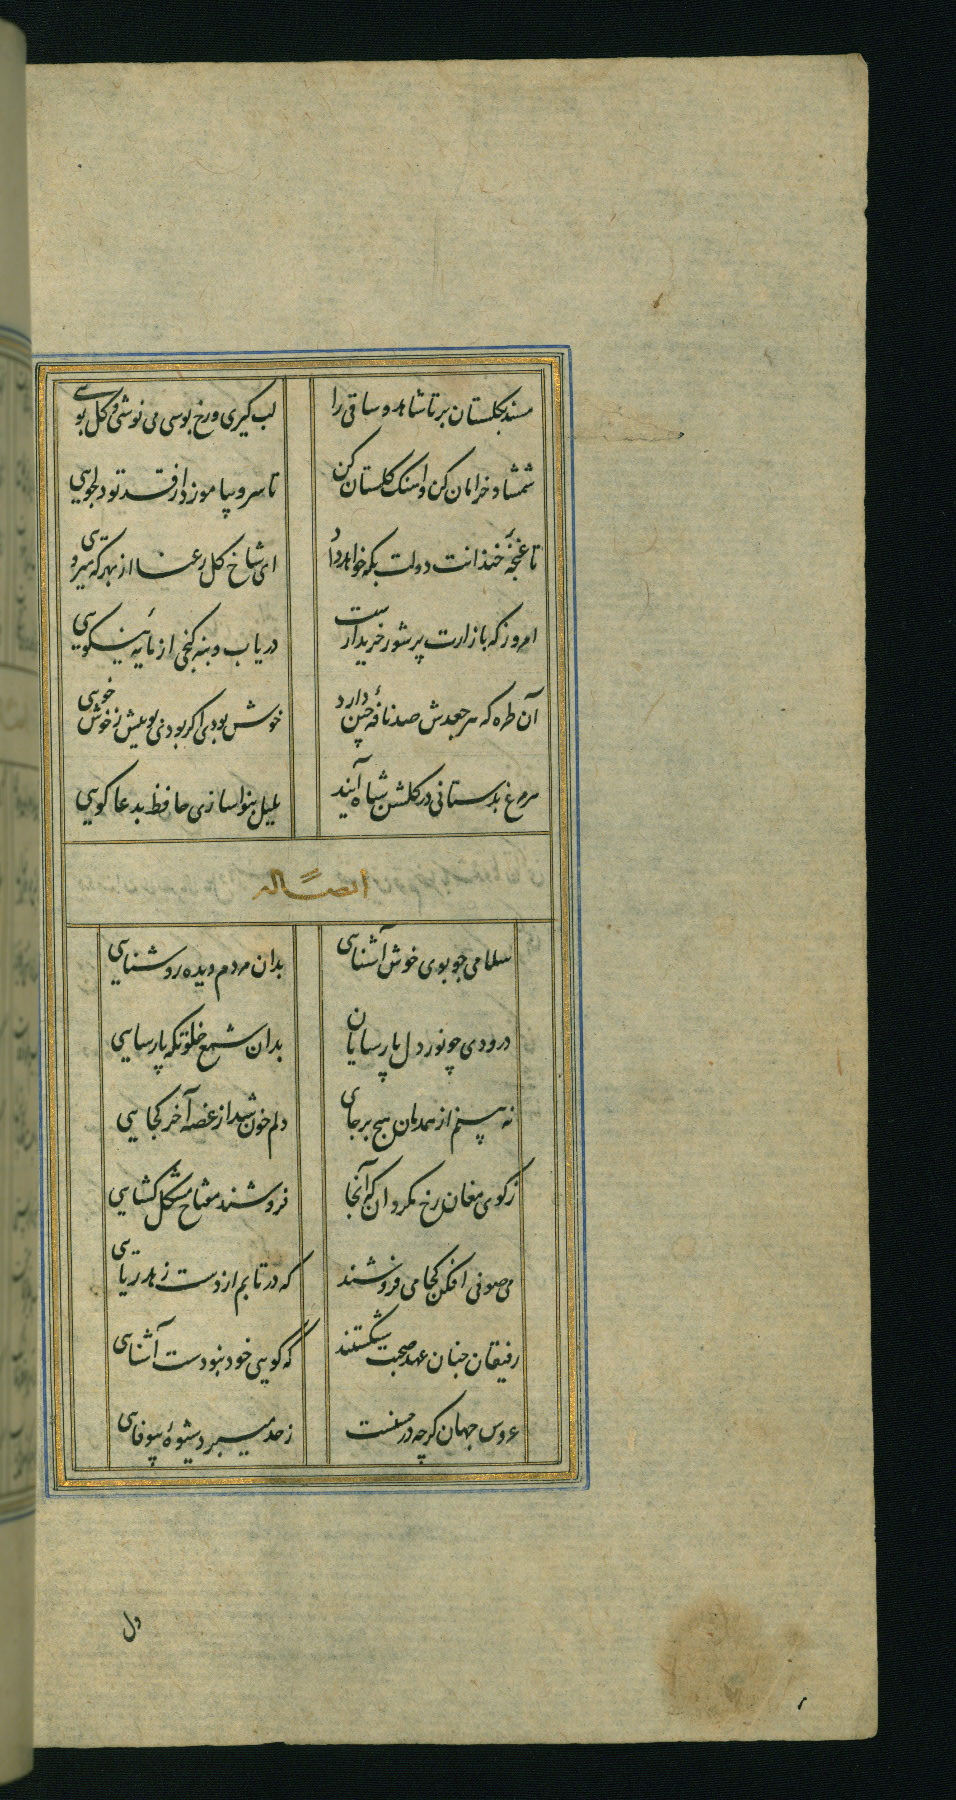 مسند بکلستان بر تا شاهد و ساقی را لب کیری و رخ بوسی می نوشی و کل بویی
شمشاد خرامان کن و آهنک کلستان کن تا سرو بیاموزد از قد تو دلجویی
تا غنچهٔ خندانت دولت بکه خواهد داد ای شاخ کل رعنا از بهر که میرویی
امروز که بازارت پر شور خریدارست دریاب و بنه کنجی از مایهٔ نیکویی
آن طره که هر جعدش صد نافهٔ چین دارد خوش بودی اکر بودی بوییش ز خوش خویی
هر مرغ بدستانی در کلشن شاه آیند بلبل بنوا سازی حافظ بدعا کویی
ایضاً له
سلامی چو بوی خوش آشنایی بدان مردم دیده روشنایی
درودی چو نور دل پارسایان بدان شمع خلوتکه پارسایی
نه بینم از همدمان هیچ بر جای دلم خون شد از غصه آخر کجایی
ز کوی مغان رخ مکردان که آنجا فروشند مفتاح مشکل کشایی
می صوفی افکن کجا می فروشند که در تابم از دست زهد ریایی
رفیقان چنان عهد صحبت شکستند که کویی خود نبودست آشنایی
عروس جهان کرچه در حسنست ز حد میبرد شیوهٔ بیوفایی
دل